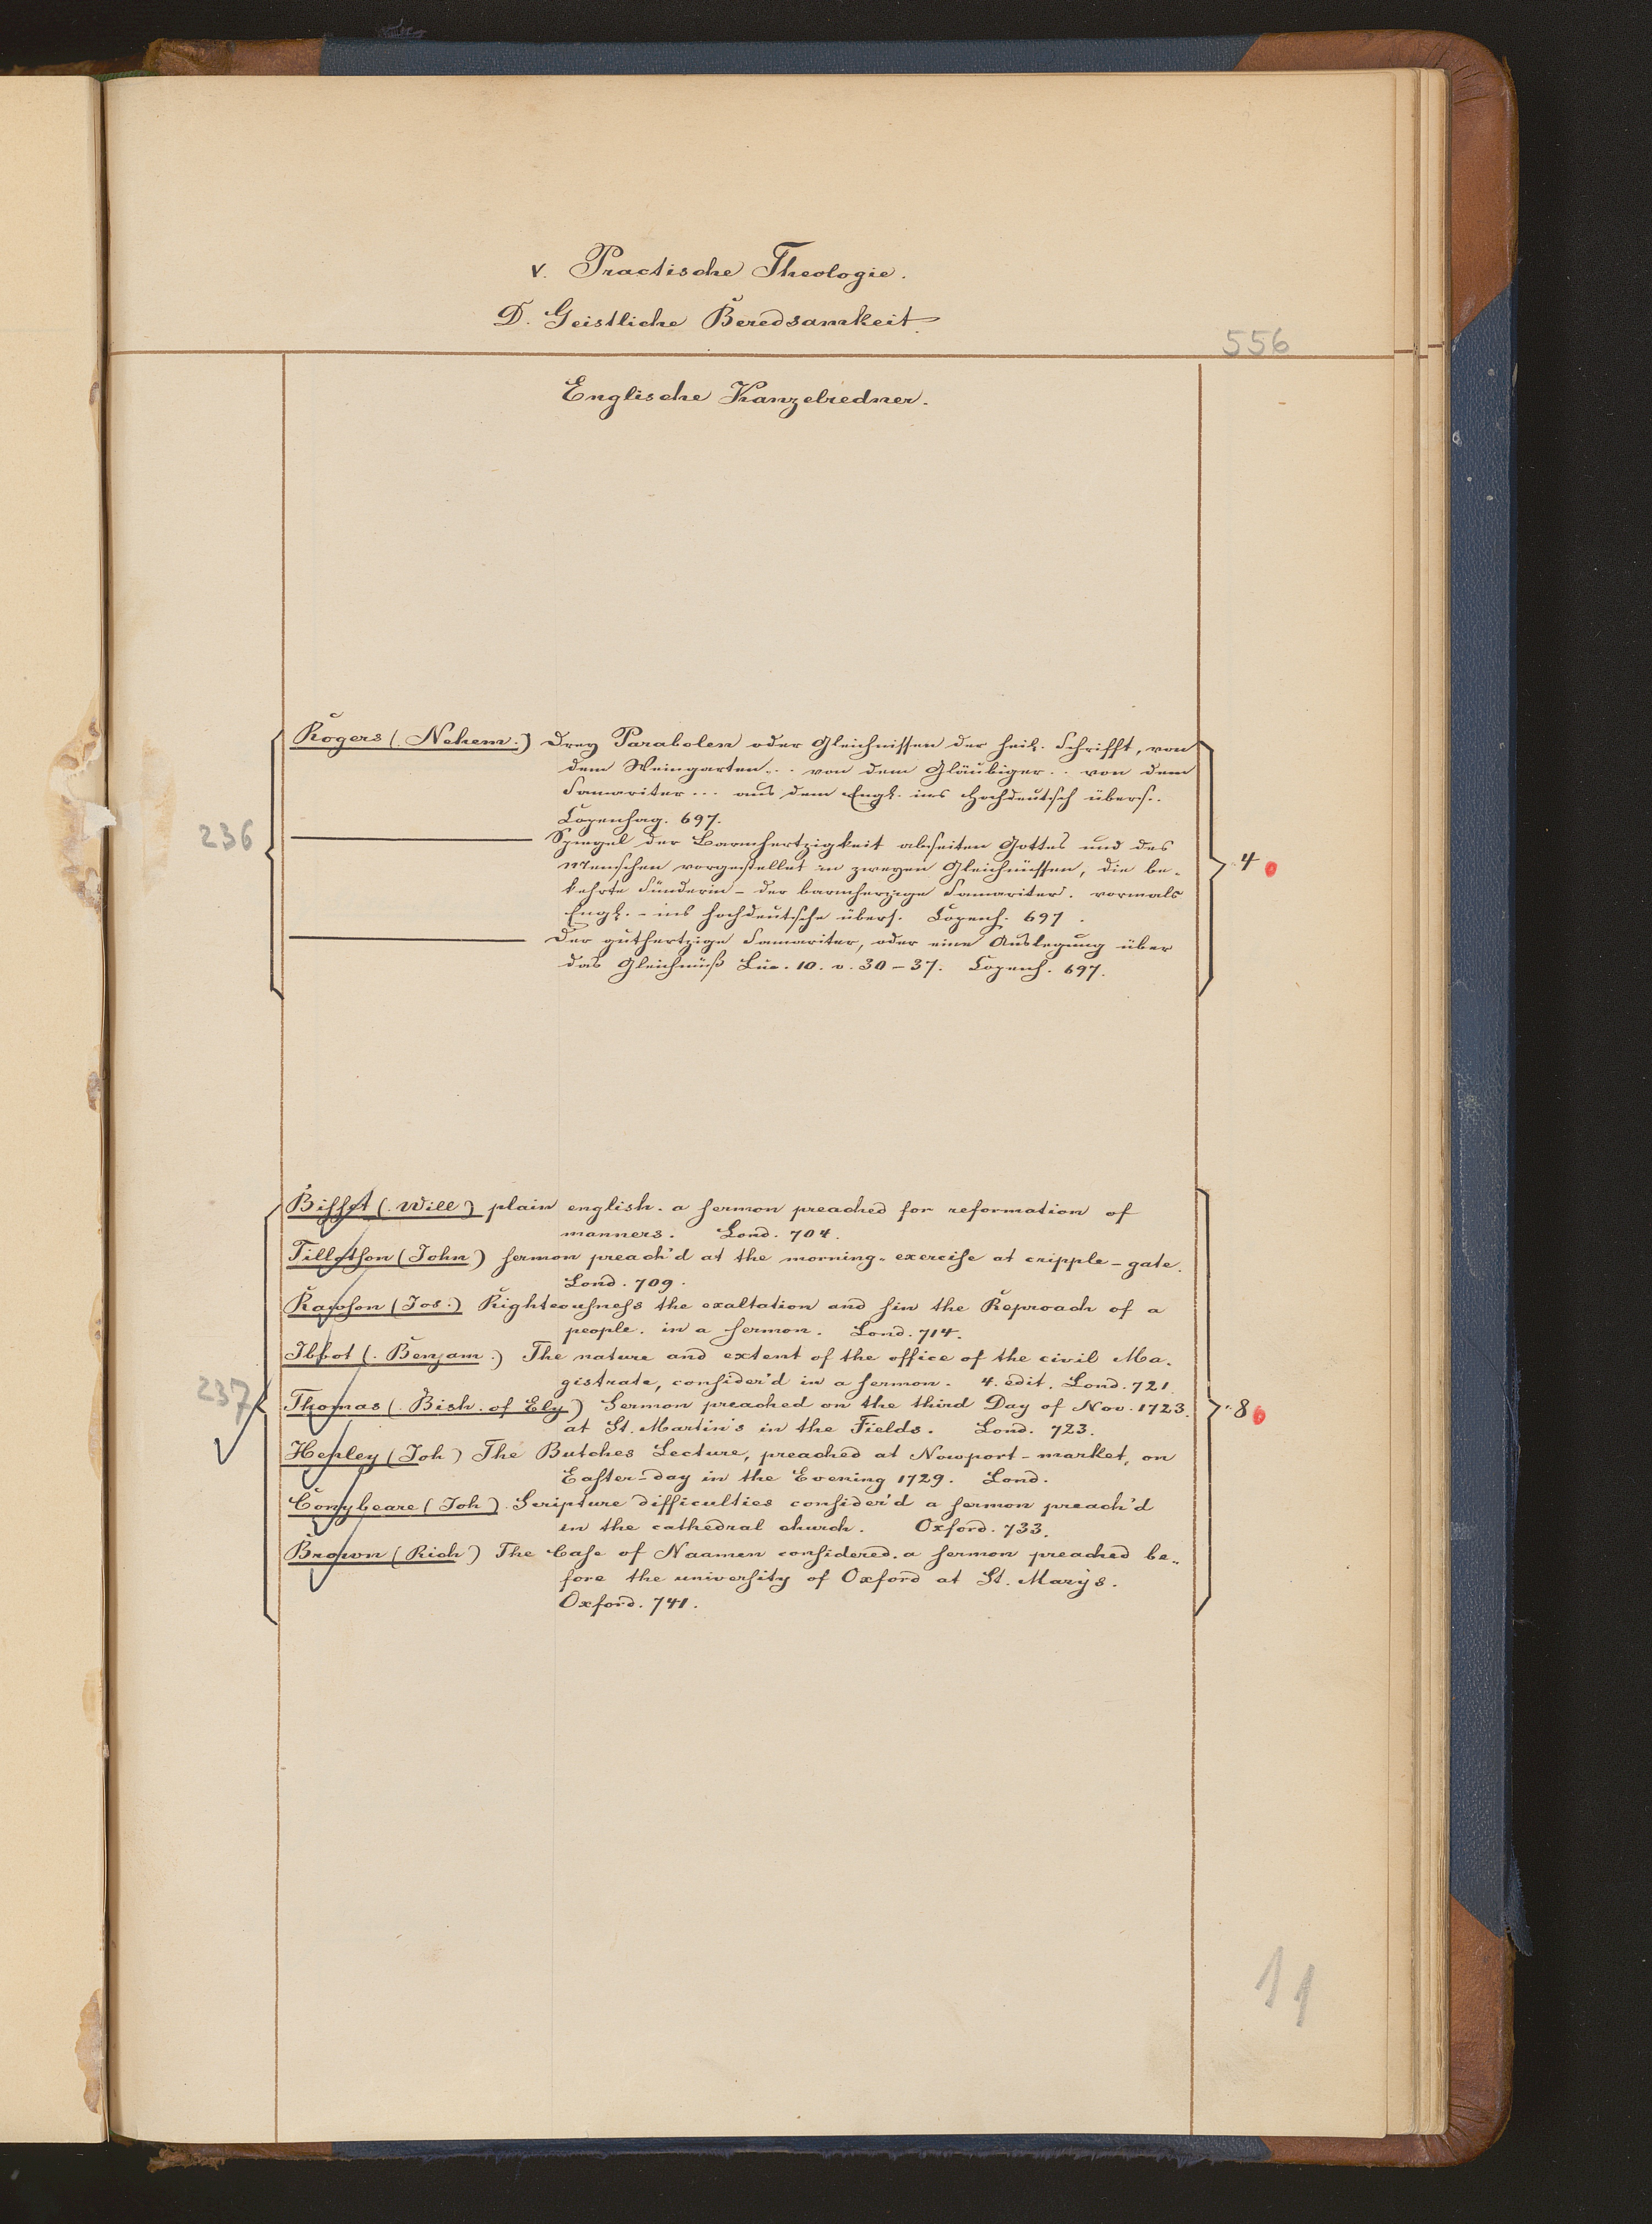 V. Practische Theologie.
D. Geistliche Beredsamkeit.
556
Englische Kanzelredner.
Rogers (. Nehem.) Drey Parabolen oder Gleichnissen der heil. Schrifft, von
dem Weingarten... von dem Gläubiger.. von dem
Samariter... aus dem Engl. ins Hochdeutsch übers..
Copenhag. 697.
236
Spiegel der Barmhertzigkeit abseiten Gottes und des
Menschen vorgestellet in zweyen Gleichnüssen, die be-
kehrte Sünderin - der barmherzige Samariter. vormals
Engl. - ins hochdeutsche übers. Copenh. 697.
4
Der guthertzige Samariter, oder eine Auslegung über
das Gleichnüß Luc. 10. v. 30-37. Copenh. 697.
Bisset (. Will) plain english. a sermon preached for reformation of
manners. Lond. 704.
Tillotson (John) sermon preach'd at the morning-exercise at cripple-gate.
Lond. 709.
Rawson (Jos.) Righteousness the exaltation and sin the Reproach of a
people. in a sermon. Lond. 714.
Ibbot (. Benjam.) The nature and extent of the office of the civil Ma-
gistrate, consider'd in a sermon. 4. edit. Lond. 721.
237
Thomas (. Bish. of Ely) Sermon preached on the third Day of Nov. 1723.
at St. Martin's in the Fields. Lond. 723.
8
Henley (Joh) The Butches Lecture, preached at Nowport-market, on
Easter-day in the Evening 1729. Lond.
Conybeare (Joh). Scripture difficulties consider'd a sermon preach'd
in the cathedral church. Oxford. 733.
Brown (Rich) The Case of Naamen considered. a sermon preached be-
fore the university of Oxford at St. Mary's.
Oxford. 741.
11